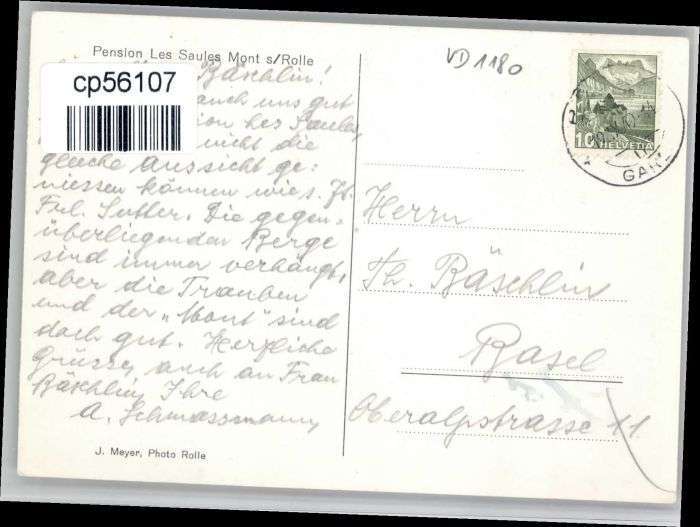 Pension Les Saules Mont s/Rolle
VD 1180
cp56107
Bäschlin!
auch uns gut
ion les Saules,
nicht die
gleiche Aussicht ge:
niessen können wie s. Zt.
Frl. Sutter. Die gegen-
überliegenden Berge
sind immer verhängt,
aber die Trauben
und der „Mont" sind
doch gut. Herzliche
Grüsse, auch an Frau
Bäschlin, Ihre
A. Schmassmann,
J. Meyer, Photo Rolle
10 HELVETIA
GAR
Herrn
Th. Bäschlin
Basel
Oberalpstrasse 11